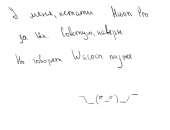 У меня, кстати Huion Pro
за них советую, наверн
Но говорят Wacom лучше
¯\_(°-°)_/¯